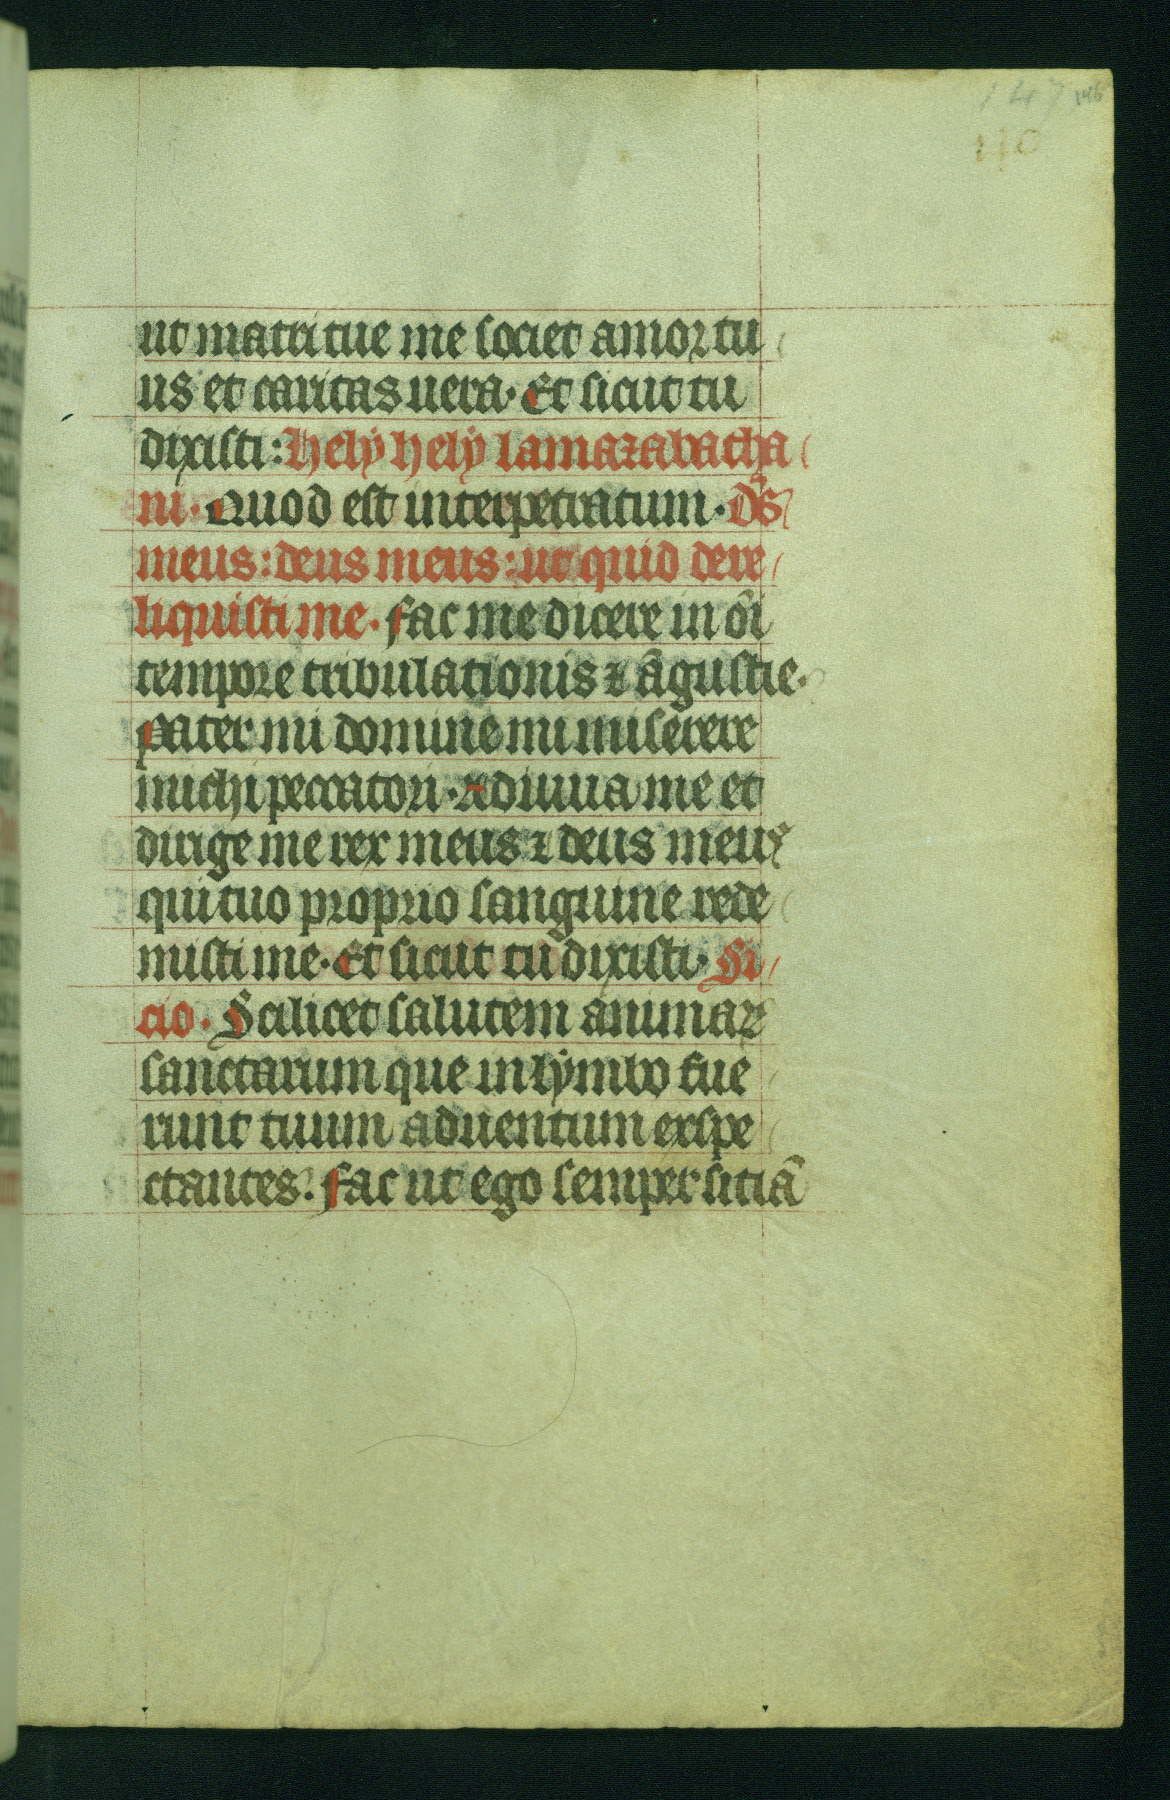 147 146
170
ut matri tue me societ amor tu
us et caritas uera· Et sicut tu
dixisti: hely hely lamazabatha
ni· Quod est interpetratum· Dš
meus: deus meus: ut quid dere
liquisti me· fac me dicere in oı̄
tempore tribulationis ⁊ āgustie·
pater mi domine mi miserere
michi peccatori· adiuua me et
dirige me rex meus ⁊ deus meus
qui tuo proprio sanguine rede
misti me· Et sicut tu dixisti· Si
cio· Scilicet salutem animaꝝ
sanctarum que in lymbo fue
runt tuum aduentum exspe
ctantes· fac ut ego semper sitiā